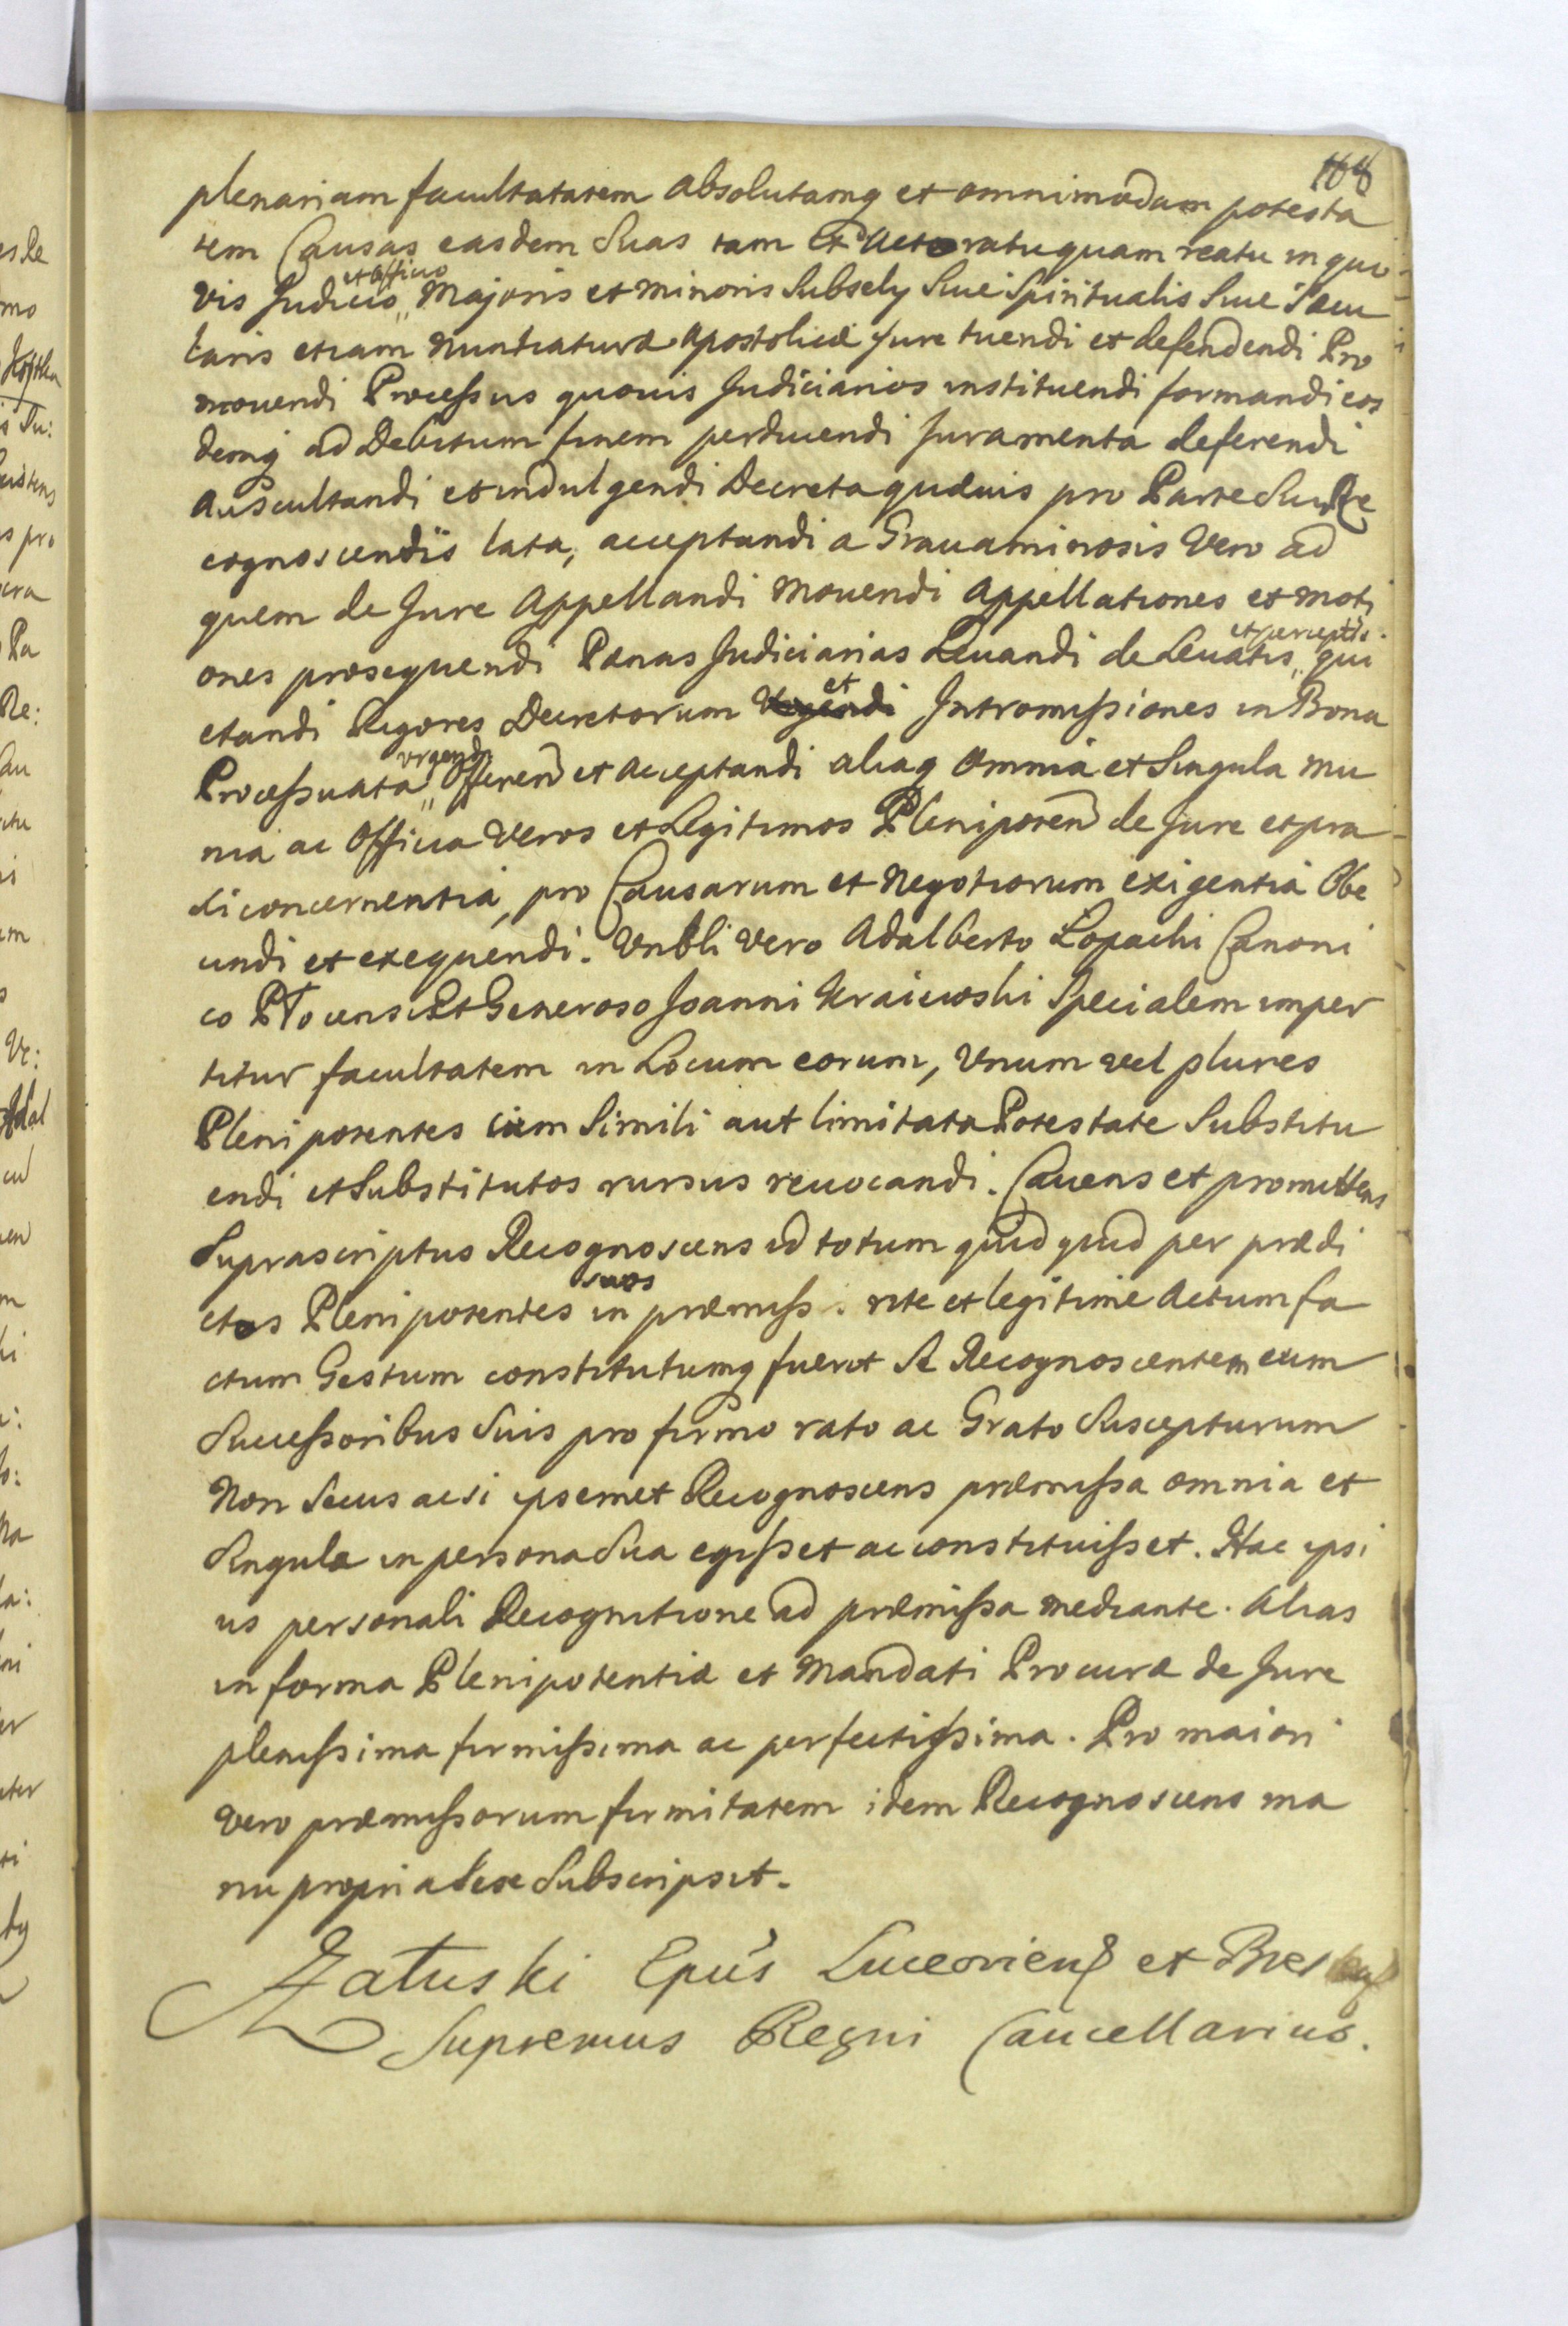 168
plenariam facultatarem absolutamq et omnimodam potesta
tem Causas easdem Suas tam ex actoratu quam reatu in quo
vis Judicio et Officio Majoris et minoris Subsely Siue Spiritualis Siue Sæcu
laris etiam Nuntiaturæ Apostolicæ jure tuendi et defendendi Pro
mouendi Processus quouis Judiciarios instituendi formandi eos
demq ad Debitum finem perducendi Juramenta deferendi
Auscultandi et indulgendi Decreta quæuis pro Parte Sui Re
cognoscendis lata, acceptandi a Grauaminosis Vero ad
quem de Jure Appellandi mouendi Appellationes et moti
ones prosequendi Pænas Judiciarias Leuandi de Leuatis et perceptis qui
etandi Rigores Decretorum et Intromissiones in Bona
Processuata vrgendi Offeren et Acceptandi aliaq Omnia et Singula mu
nia ac Officia Veros et Legitimos Plenipoten de Jure et pra
xi concernentia, pro Causarum et Negotiorum exigentia Obe
undi et exequendi. Vnbli vero Adalberto Łopacki Canoni
co Płocensi Et Generoso Joanni Kraiewski Specialem imper
titur facultatem in Locum eorum, Vnum vel plures
Plenipotentes cum Simili aut limitata Potestate Substitu
endi et Substitutos rursus reuocandi. Cauens et promittens
Suprascriptus Recognoscens id totum quidquid per prædi
ctos Plenipotentes suos in præmiss. rite et legitime Actum fa
ctum Gestum constitutumq fuerit Se Recognoscentem cum
Successoribus Suis pro firmo rato ac Grato Suscepturum
Non Secus ac si ipsemet Recognoscens præmissa omnia et
Singula in persona Sua egisset ac constituisset. Hac ipsi
us personali Recognitione ad præmissa mediante. Alias
in forma Plenipotentiæ et Mandati Procuræ de Jure
plenissima firmissima ac perfectissima. Pro maiori
vero præmissorum firmitatem idem Recognoscens ma
nu propria Sese Subscripsit.
Załuski Epus Luceorien et
Supremus Regni Cancellarius.